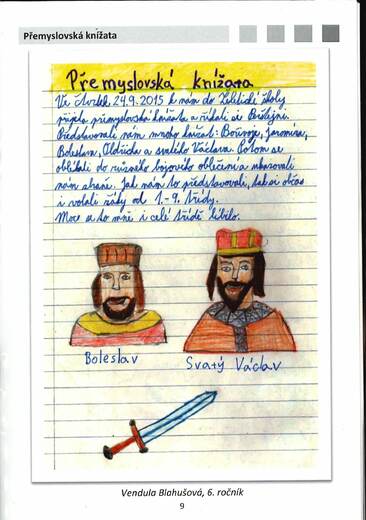 Přemyslovská knížata
Přemyslovská knížata
Ve čtvrtek 24.9.2015 k nám do Loděnické školy
přijela přemyslovská knížata a říkali si
Představovali nám mnoho knížat: Bořivoje, Jaromíra,
Boleslava, Oldřicha a svatého Václava. Potom se
oblékali do různého bojového oblečení a ukazovali
nám zbraně. Jak nám to představovali, tak si občas
i volali žáky od 1.-9. třídy.
Moc se to mně i celé třídě líbilo.
Boleslav
Svatý Václav
Vendula Blahušová, 6. ročník
9